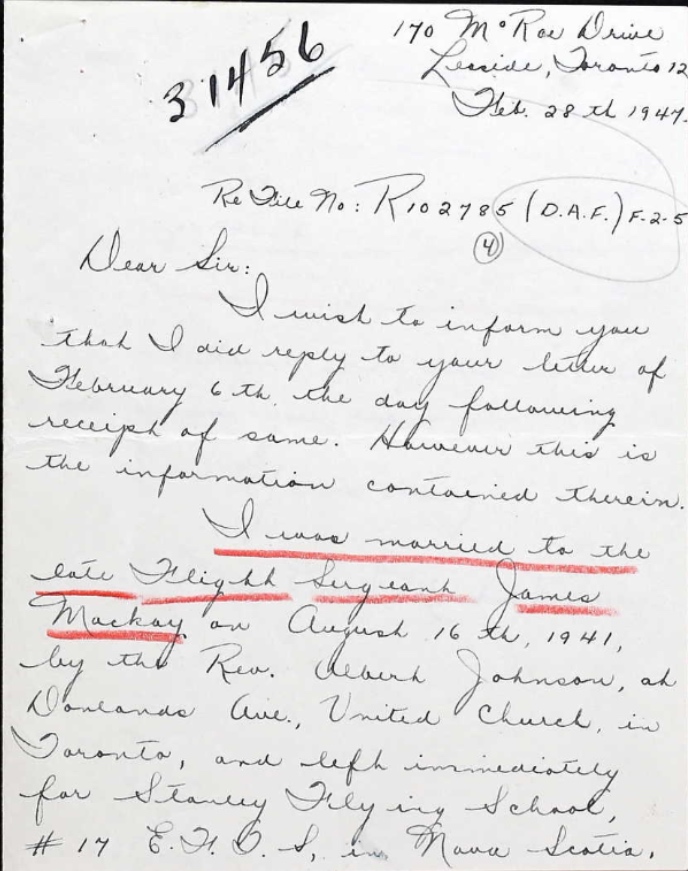 170 McRae Drive
Leaside, Toronto 12
Feb. 28th 1947.
31456
Re File No: R102785 (D.A.F.) F-2-5
4
Dear Sir:
I wish to inform you
that I did reply to your letter of
February 6th, the day following
receipt of same. However this is
the information contained therein.
I was married to the
late Flight Sergeant James
Mackay on August 16th, 1941,
by the Rev. Albert Johnson, at
Donlands Ave., United Church, in
Toronto, and left immediately
for Stanley Flying School,
#17 E.F.T.S, in Nova Scotia.